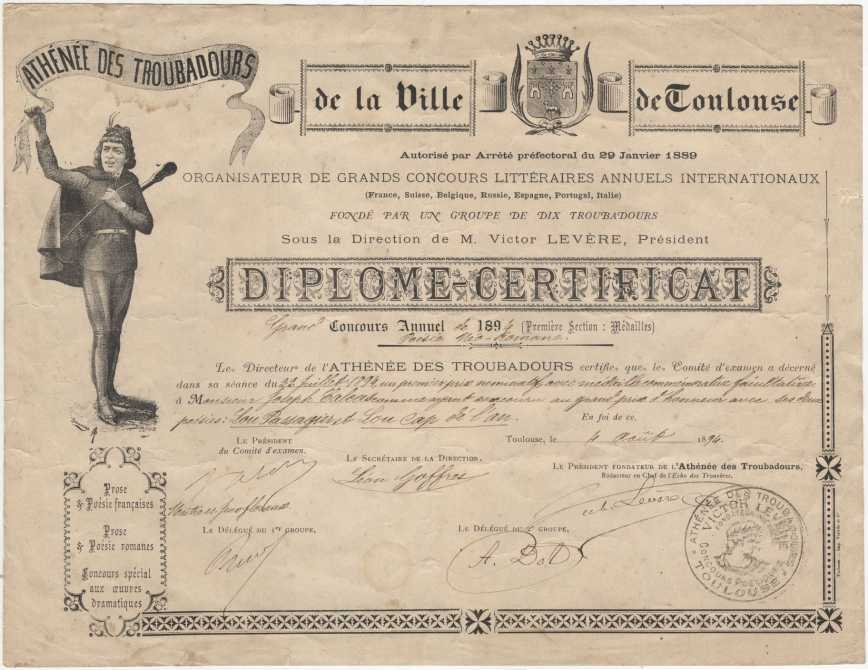 ATHÉNÉE DES TROUBADOURS
de la Ville de Toulouse
Autorisé par Arrêté préfectoral du 29 Janvier 1889
ORGANISATEUR DE GRANDS CONCOURS LITTÉRAIRES ANNUELS INTERNATIONAUX
(France, Suisse, Belgique, Russie, Espagne, Portugal, Italie)
FONDÉ PAR UN GROUPE DE DIX TROUBADOURS
Sous la Direction de M. Victor LEVÈRE, Président
DIPLOME-CERTIFICAT
Grand Concours Annuel de 1894 (Première Section : Médailles)
Poésie Néo-Romane.
Le Directeur de l'ATHÉNÉE DES TROUBADOURS certifie que le Comité d'examen a décerné
dans sa séance du 22 juillet 1894 un premier prix nominatif avec médaille commémorative facultative
à Monsieur Joseph comme ayant concouru au grand prix d'honneur avec ses deux
poésies: Lou Passagier et Lou Cap de l'an. En foi de ce.
Toulouse, le 4 août 1894.
LE PRÉSIDENT
du Comité d'examen.
LE SECRÉTAIRE DE LA DIRECTION,
LE PRÉSIDENT FONDATEUR DE L'Athénée des Troubadours,
Rédacteur en Chef de l'Echo des Trouvères.
Léon Gaffres
LE DÉLÉGUÉ DU 1er GROUPE,
LE DÉLÉGUÉ DU GROUPE,
A. Dot
Prose
& Poésie françaises
Prose
& Poésie romanes
Concours spécial
aux œuvres
dramatiques
ATHÉNÉE DES TROUBADOURS
VICTOR LEVÈRE
TOULOUSE